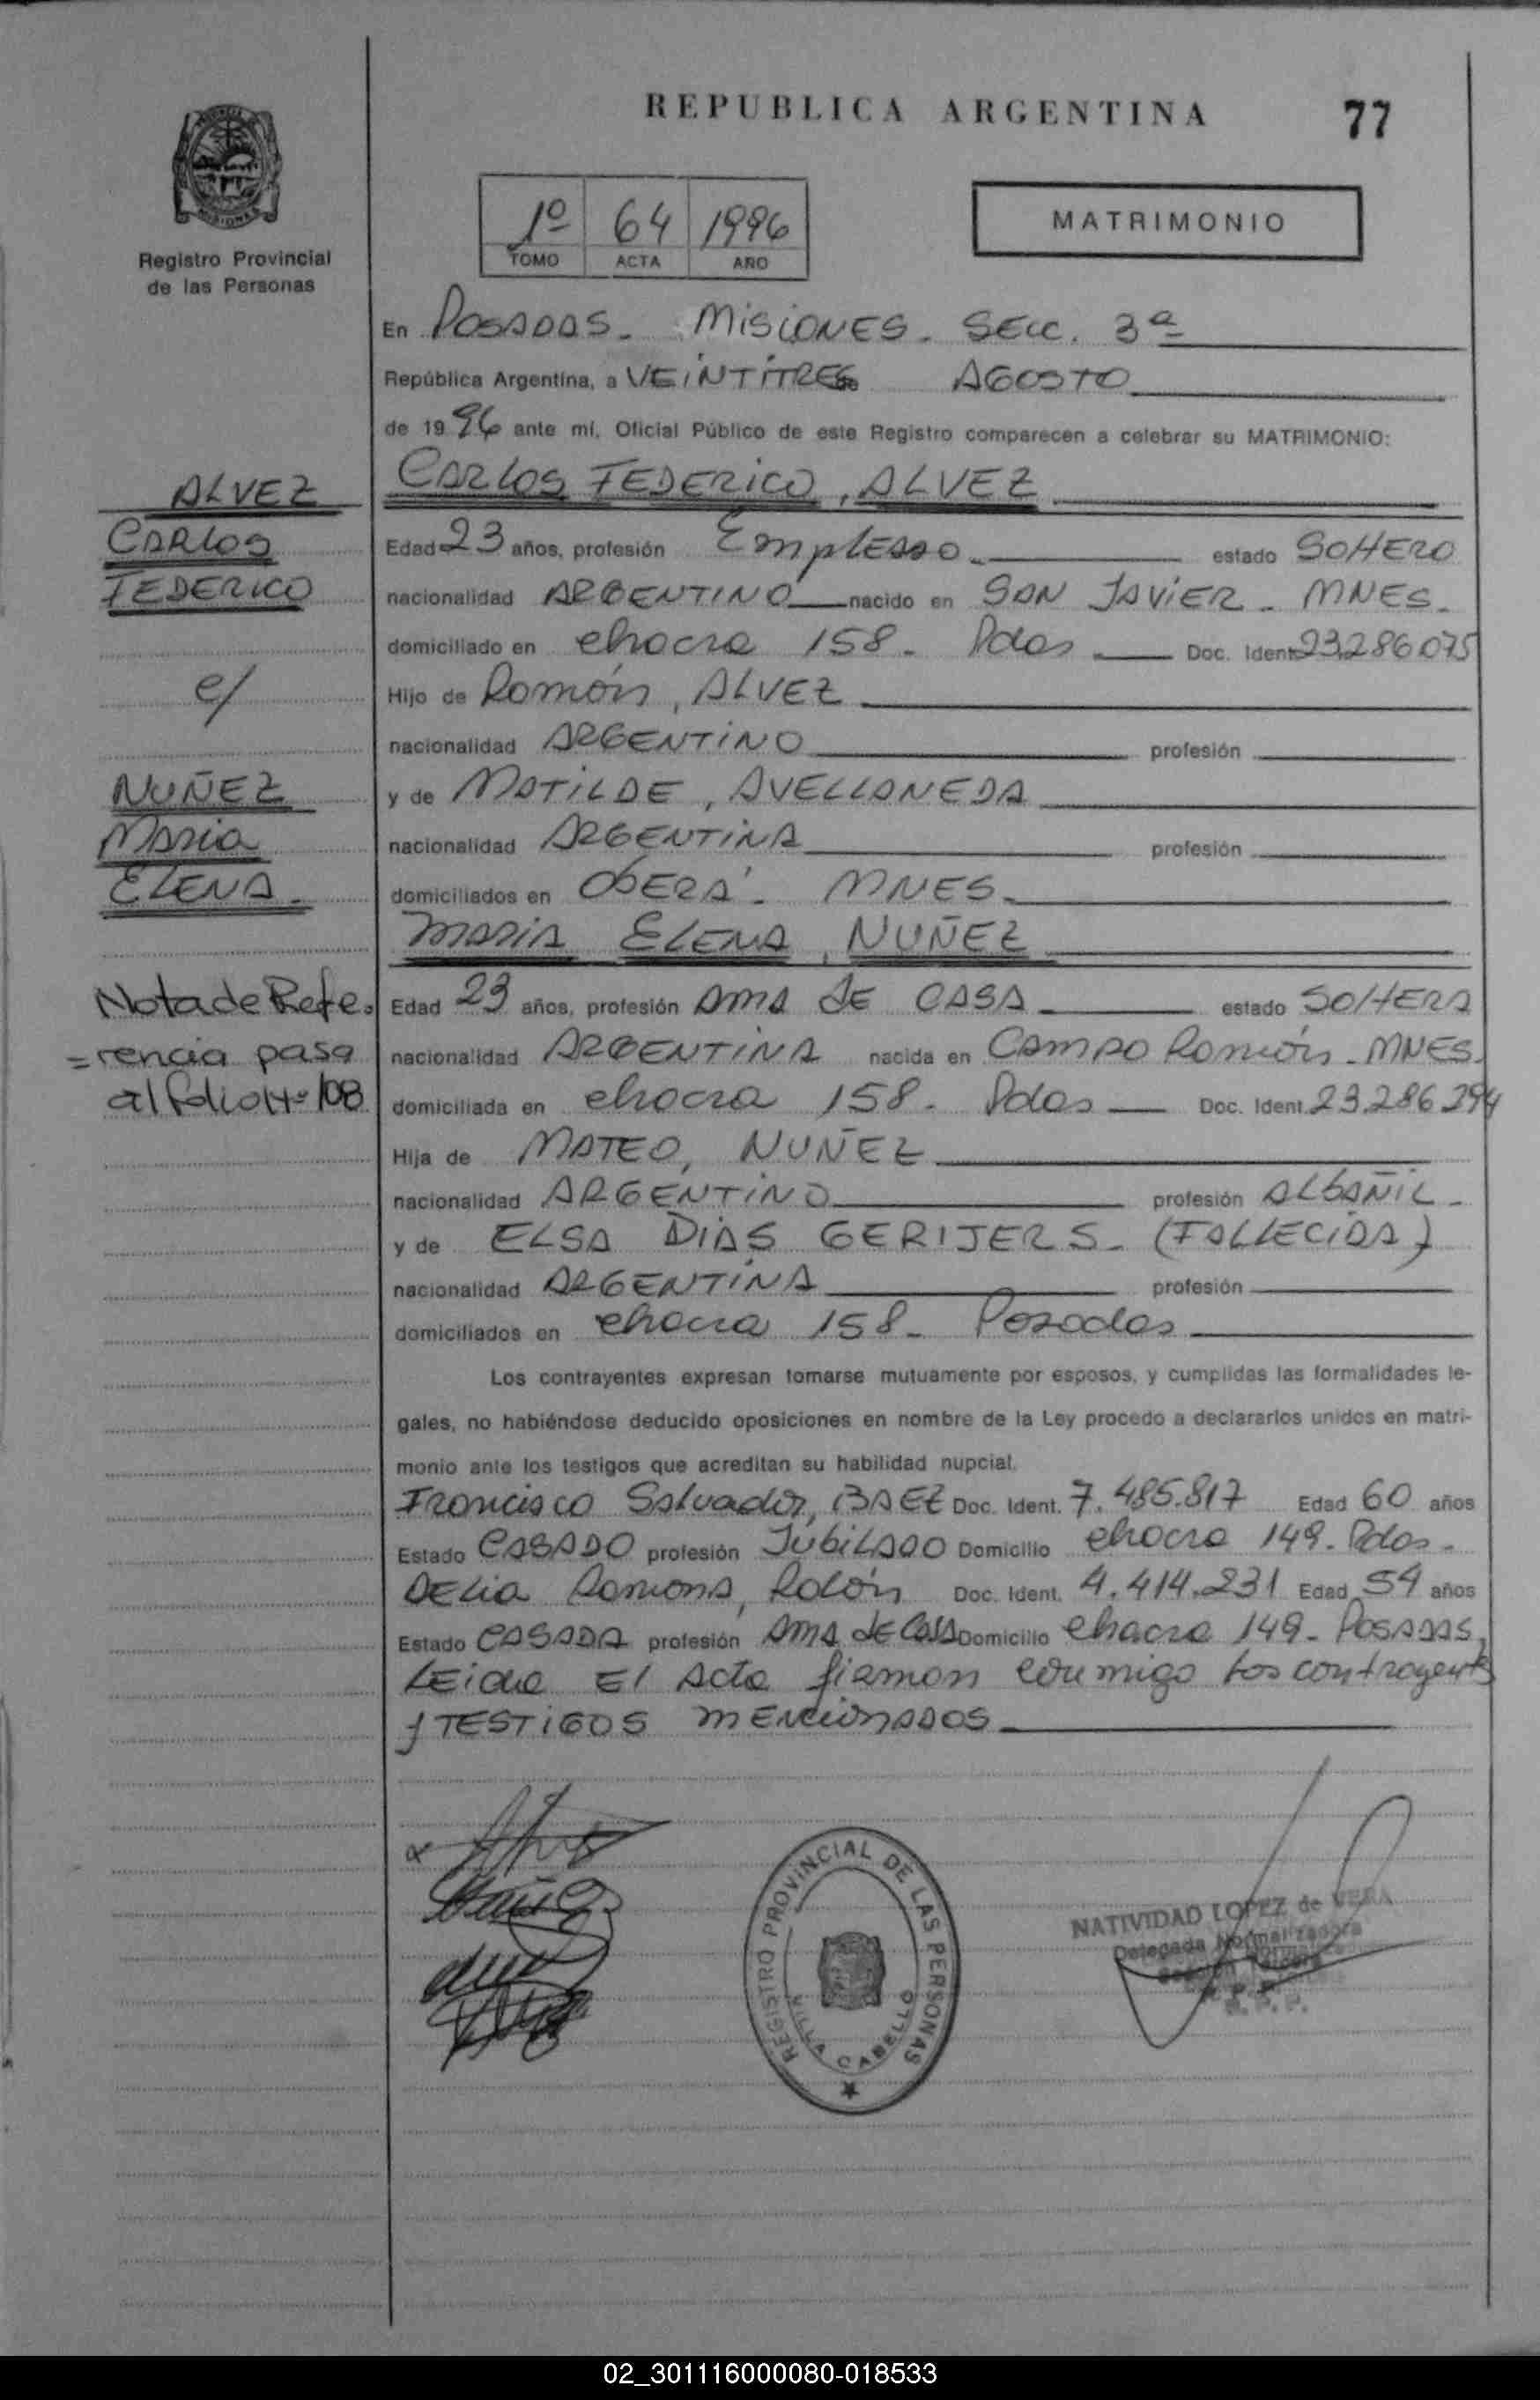 REPUBLICA ARGENTINA 77
Registro Provincial
de las Personas
1º 64 1996
TOMO ACTA AÑO
MATRIMONIO
En POSADAS - MISIONES - SECC. 3ª
República Argentina, a VEINTITRES AGOSTO
de 1996 ante mí, Oficial Público de este Registro comparecen a celebrar su MATRIMONIO:
ALVEZ
CARLOS
FEDERICO
c/
NUÑEZ
Maria
ELENA
Nota de Refe.
=rencia pasa
al folio Nº 108
CARLOS FEDERICO, ALVEZ
Edad 23 años, profesión Empleado estado SOLTERO
nacionalidad ARGENTINO nacido en SAN JAVIER - MNES.
domiciliado en chacra 158 - Pdas Doc. Ident. 23.286.075
Hijo de Ramón, ALVEZ
nacionalidad ARGENTINO profesión
y de MATILDE, AVELLANEDA
nacionalidad ARGENTINA profesión
domiciliados en OBERÁ - MNES.
MARIA ELENA, NUÑEZ
Edad 23 años, profesión AMA DE CASA estado SOLTERA
nacionalidad ARGENTINA nacida en CAMPO Ramón - MNES.
domiciliada en chacra 158 - Pdas Doc. Ident. 23.286.294
Hija de MATEO, NUÑEZ
nacionalidad ARGENTINO profesión ALBAÑIL -
y de ELSA DIAS GERIJERS - (FALLECIDA)
nacionalidad ARGENTINA profesión
domiciliados en chacra 158 - Posadas
Los contrayentes expresan tomarse mutuamente por esposos, y cumplidas las formalidades le-
gales, no habiéndose deducido oposiciones en nombre de la Ley procedo a declararlos unidos en matri-
monio ante los testigos que acreditan su habilidad nupcial.
Francisco Salvador, BAEZ Doc. Ident. 7.485.817 Edad 60 años
Estado CASADO profesión JUBILADO Domicilio chacra 149 - Pdas -
DELIA Ramona, Rolón Doc. Ident. 4.414.231 Edad 54 años
Estado CASADA profesión AMA DE CASA Domicilio chacra 149 - POSADAS,
LEIDA El Acta firman conmigo los contrayentes
y TESTIGOS MENCIONADOS
REGISTRO PROVINCIAL DE LAS PERSONAS
VILLA CABELLO
NATIVIDAD LOPEZ de VERA
Delegada Normalizadora
02_301116000080-018533